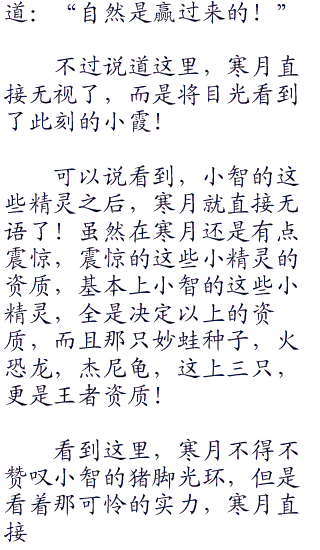 道：“自然是赢过来的！”
不过说道这里，寒月直
接无视了，而是将目光看到
了此刻的小霞！
可以说看到，小智的这
些精灵之后，寒月就直接无
语了！虽然在寒月还是有点
震惊，震惊的这些小精灵的
资质，基本上小智的这些小
精灵，全是决定以上的资
质，而且那只妙蛙种子，火
恐龙，杰尼龟，这上三只，
更是王者资质！
看到这里，寒月不得不
赞叹小智的猪脚光环，但是
看着那可怜的实力，寒月直
接